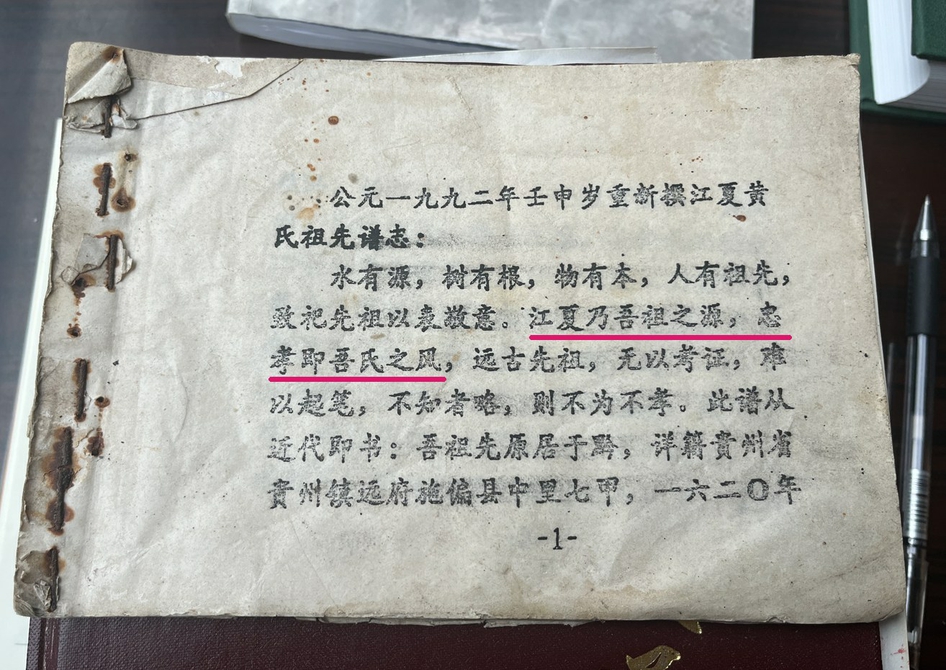 公元一九九二年壬申岁重新撰江夏黄
氏祖先谱志：
水有源，树有根，物有本，人有祖先，
致祀先祖以表敬意。江夏乃吾祖之源，忠
孝即吾氏之风，远古先祖，无以考证，难
以起笔，不知者略，则不为不孝。此谱从
近代即书：吾祖先原居于黔，详籍貴州省
貴州镇远府施偏县中里七甲，一六二〇年
-1-